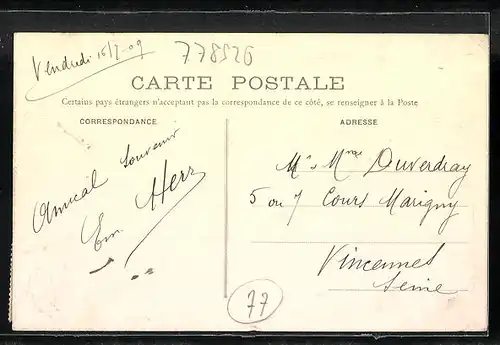 Vendredi 16/7-09
778526
CARTE POSTALE
Certains pays étrangers n'acceptent pas la correspondance de ce côté, se renseigner à la Poste
CORRESPONDANCE
Amical souvenir
Em. Herr
ADRESSE
Mr & Mme Duverdray
5 ou 7 Cours Marigny
Vincennes
Seine
77